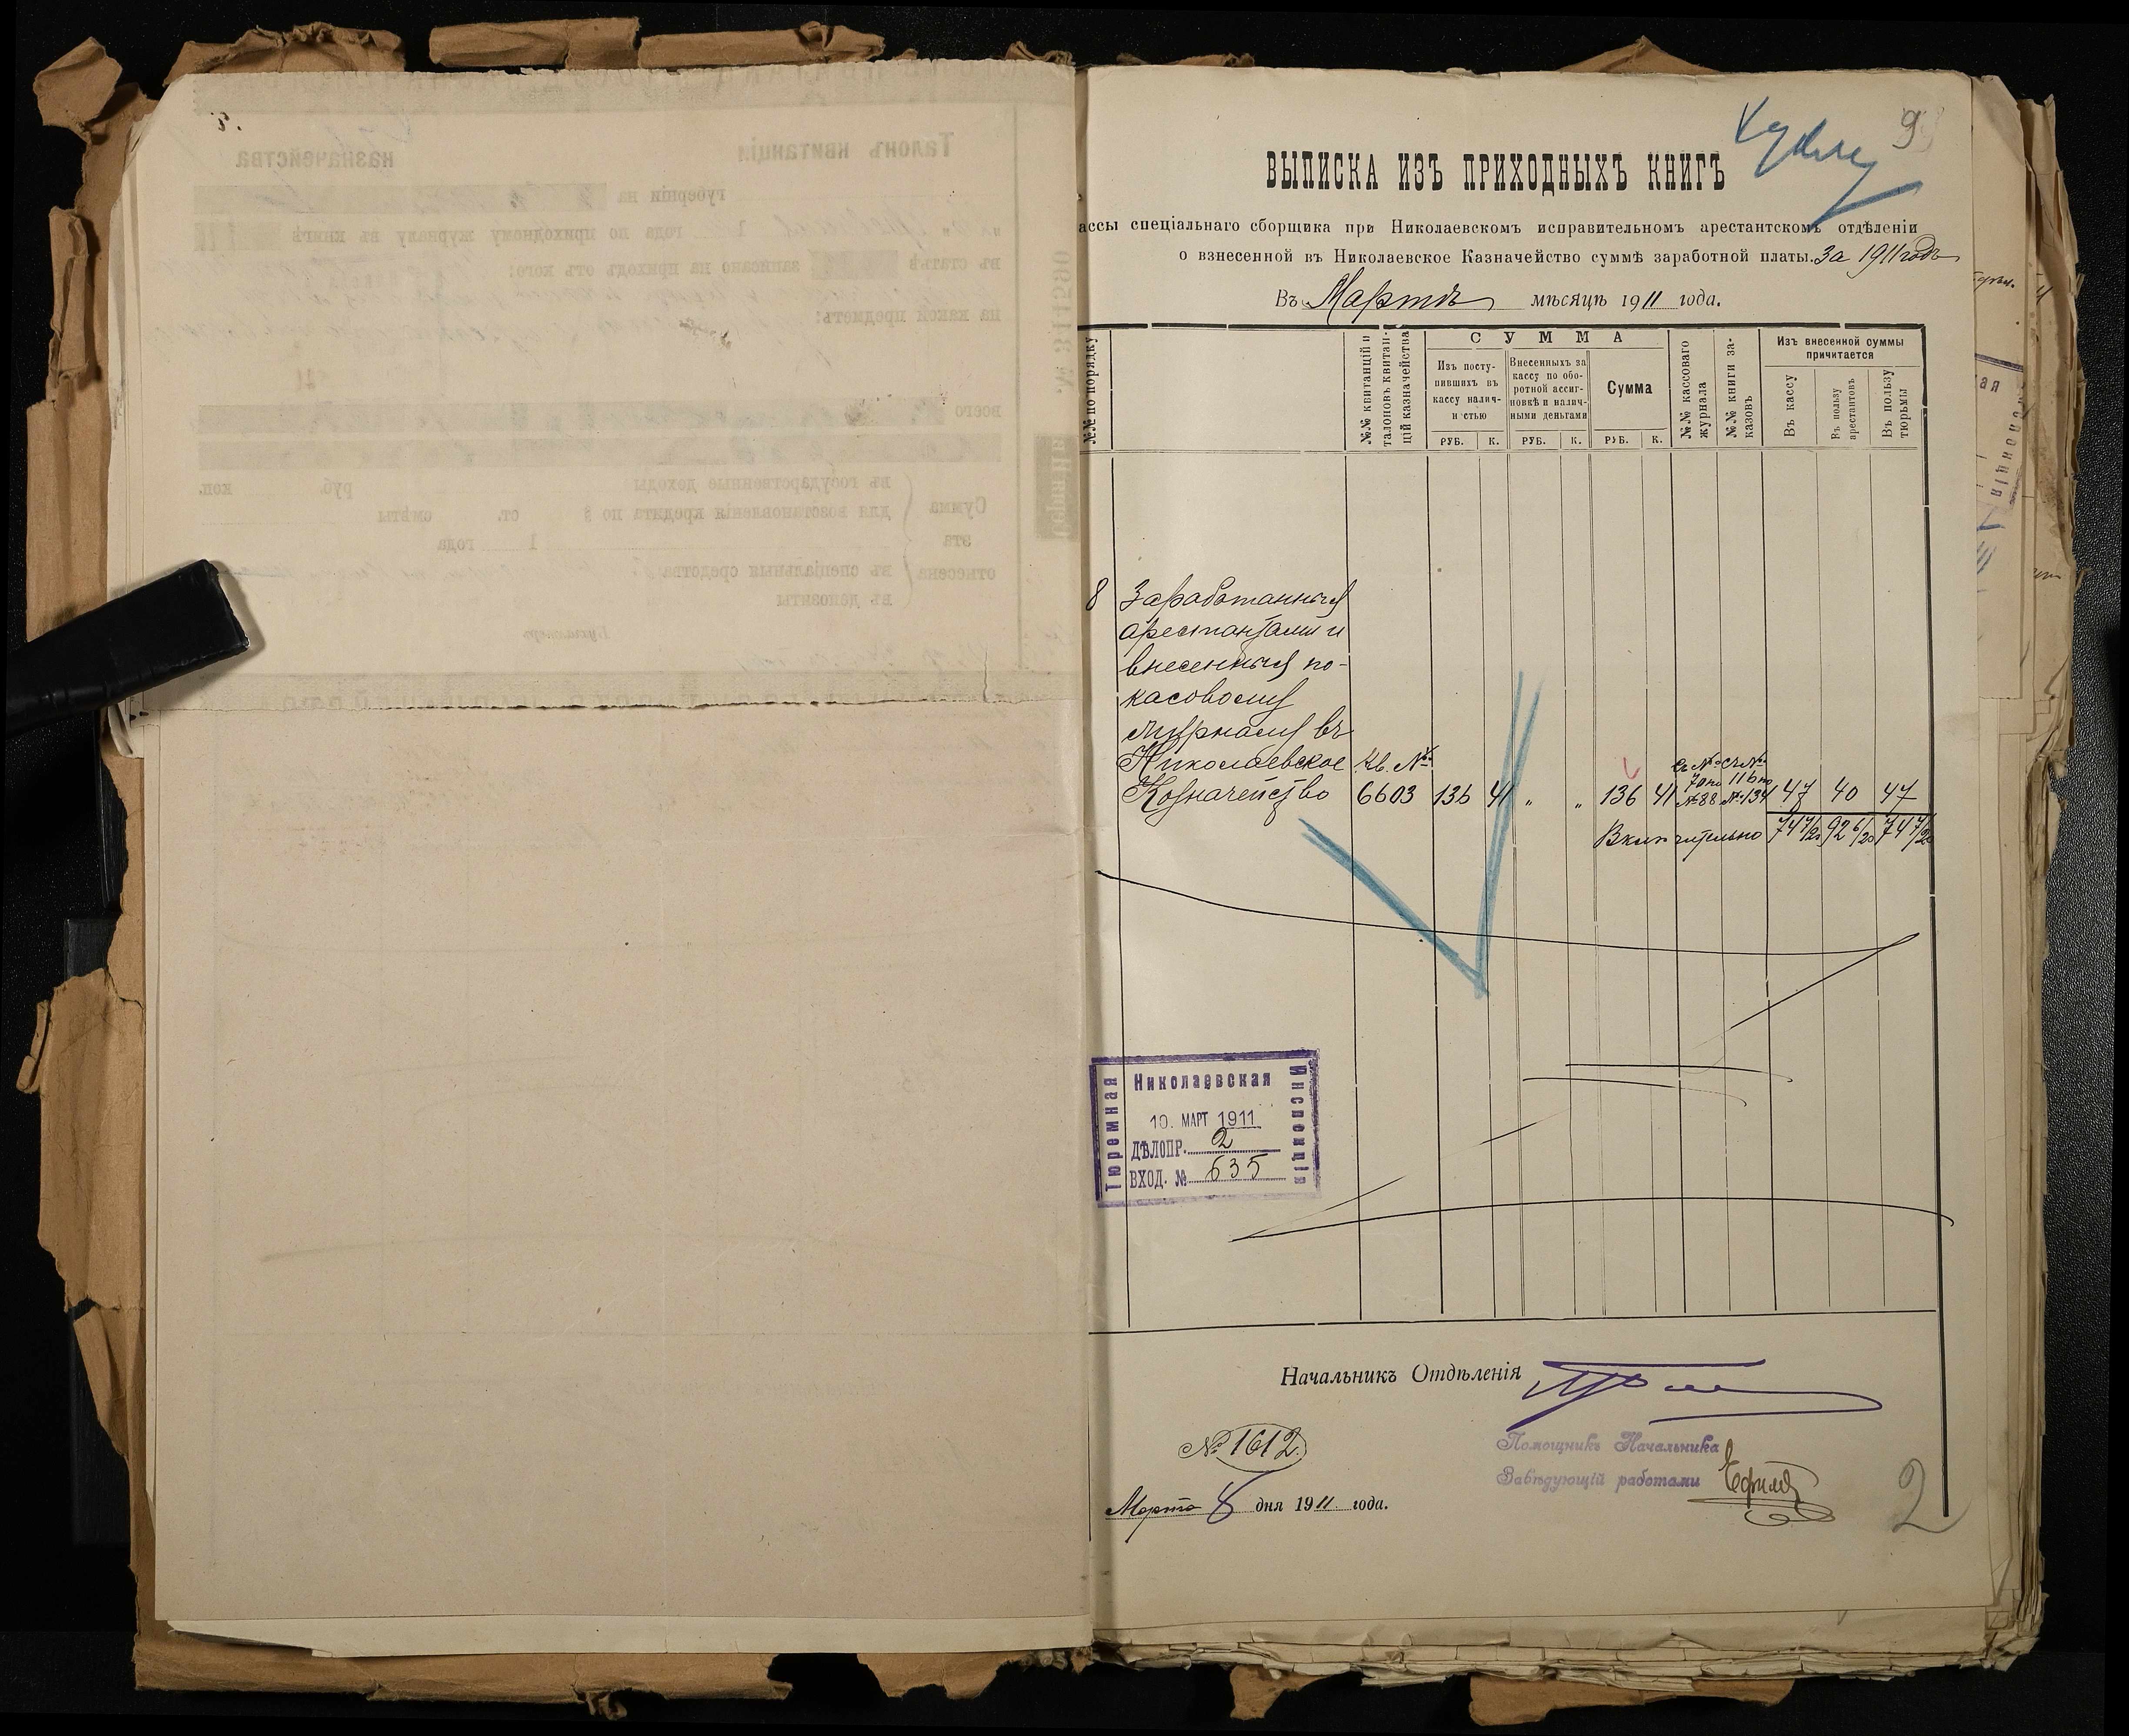 9
ВЫПИСКА ИЗЪ ПРИХОДНЫХЪ КНИГЪ
ассы спеціальнаго сборщика при Николаевскомъ исправительномъ арестантскомъ отдѣленіи
о взнесенной въ Николаевское Казначейство суммѣ заработной платы. За 1911 годъ
Въ Мартѣ мѣсяцѣ 1911 года.
№№ по порядку
№№ квитанцій и талоновъ квитанцій казначейства
СУММА
Изъ поступившихъ въ кассу наличностью
Внесенныхъ за кассу по оборотной ассигновкѣ и наличными деньгами
Сумма
РУБ. К. РУБ. К. РУБ. К.
№№ кассоваго журнала
№№ книги заказовъ
Изъ внесенной суммы причитается
Въ кассу
Въ пользу арестантовъ
Въ пользу тюрьмы
8 Заработанныя
арестантами и
внесенныя по-
касовому
журналу въ
Николаевское Кв. № съ № съ №
70 по 116 по
Казначейство 6603 136 41 „ „ 136 41 № 88 № 134 47 40 47
Включительно 74 7/20 92 6/20 74 7/20
Николаевская
Тюремная
Инспекція
10. МАРТ 1911
ДѢЛОПР. 2
ВХОД. № 635
Начальникъ Отдѣленія
№ 1612
Помощникъ Начальника
Завѣдующій работами
Марта 8 дня 1911 года.
2
Талонъ квитанціи
казначейства
губерніи на
года по приходному журналу въ книгѣ
въ статьѣ записано на приходъ отъ кого:
на какой предметъ:
всего
Сумма эта отнесена
въ государственные доходы руб. коп.
для возстановленія кредита по § ст. смѣты
1 года
въ спеціальныя средства
въ депозиты
Бухгалтеръ